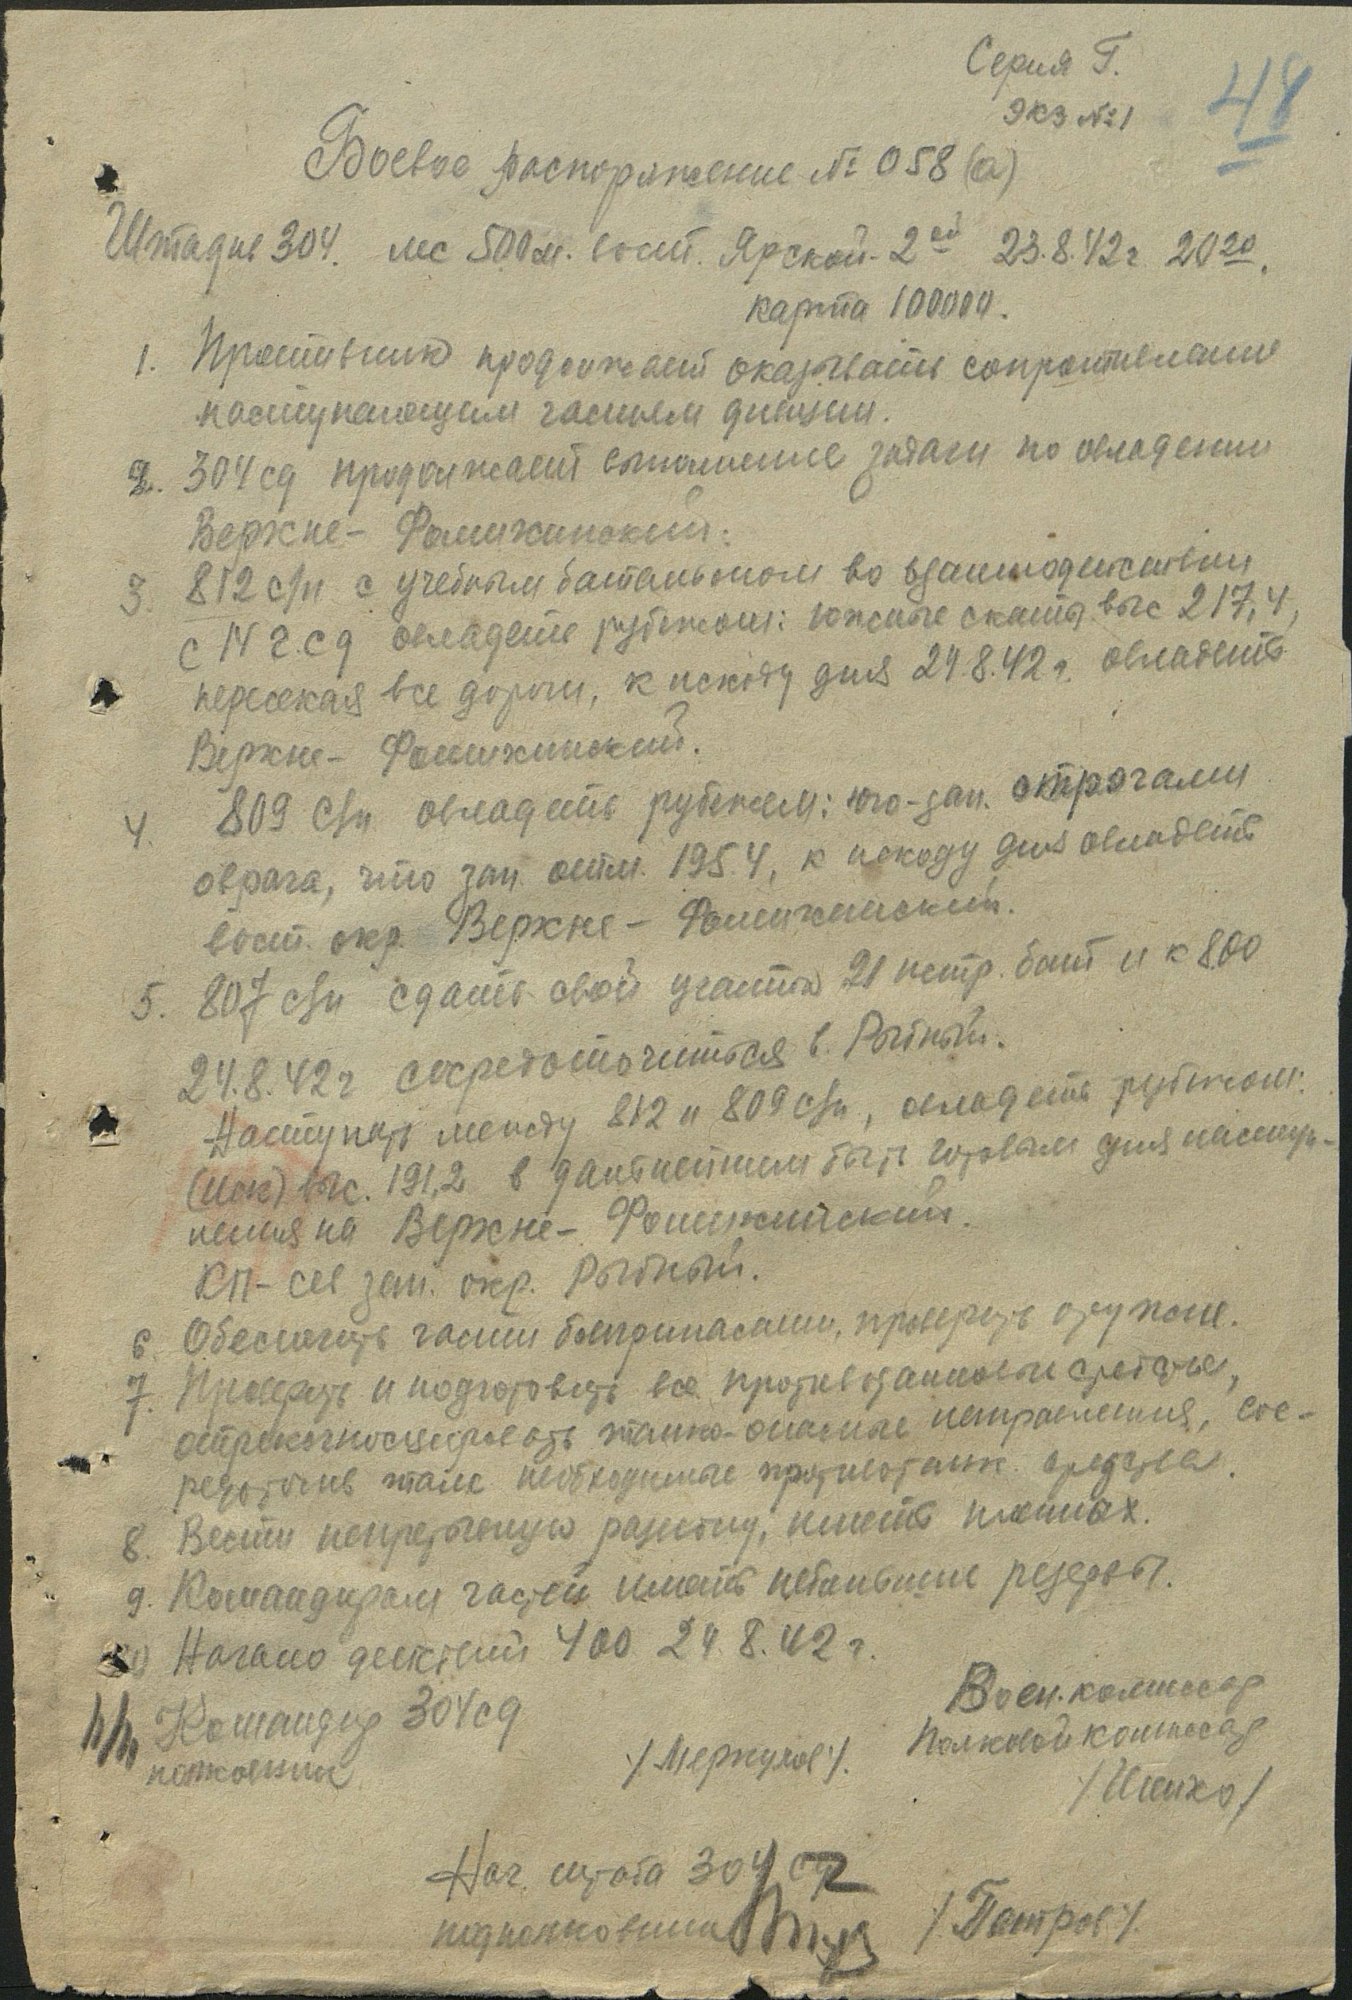 Серия Г.
экз №1
48
Боевое распоряжение № 058 (а)
Штадив 304. лес 500 м. вост. Ярской-2ой 23.8.42г 2020.
карта 100000.
1. Противник продолжает оказывать сопротивление
наступающим частям дивизии.
2. 304 сд продолжает выполнение задачи по овладении
Верхне-Фомихинский.
3. 812 с/п с учебным батальоном во взаимодействии
с 14 г.сд овладеть рубежом: южные скаты выс 217,4,
пересекая все дороги, к исходу дня 24.8.42 г. овладеть
Верхне-Фомихинский.
4. 809 с/п овладеть рубежем: юго-зап. отрогами
оврага, что зап. отм. 195.4, к исходу дня овладеть
вост. окр. Верхне-Фомихинский.
5. 807 с/п сдать свой участок 21 истр. бат и к 8.00
24.8.42 г сосредоточиться в Рыбный.
Наступать между 812 и 809 с/п, овладеть рубежом:
(иск) выс. 191,2 в дальнейшем быть готовым для наступ-
ления на Верхне-Фомихинский.
КП - сев зап. окр. Рыбный.
6. Обеспечить части боеприпасами, проверить оружие.
7. Проверить и подготовить все противотанковые средства,
отрекогносцировать танко-опасные направления, сос-
редоточив там необходимые противотанк. средства.
8. Вести непрерывную разведку, иметь пленных.
9. Командирам частей иметь небольшие резервы.
10 Начало действий 400 24.8.42 г.
п/п Командир 304 сд
полковник /Меркулов/.
Воен.комиссар
Полковой комиссар
Нач. штаба 304 сд
подполковник /Петров/.